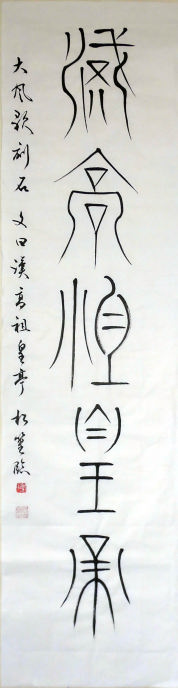 漢高祖皇帝
大風歌刻石 文曰漢高祖皇帝 臨